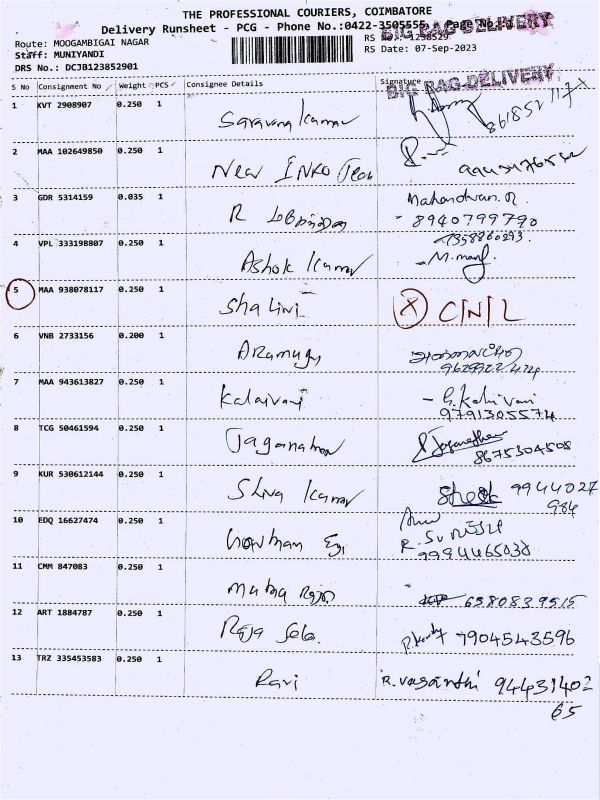 THE PROFESSIONAL COURIERS, COIMBATORE
Delivery Runsheet - PCG - Phone No.:0422-3505555, Page No.
BIG BAG DELIVERY
Route: MOOGAMBIGAI NAGAR
RS No.: 1298529
Staff: MUNIYANDI
RS Date: 07-Sep-2023
DRS No.: DCJB123852901
BIG BAG DELIVERY
S No Consignment No Weight PCS Consignee Details Signature
1 KVT 2908907 0.250 1 Saravana Kumar
2 MAA 102649850 0.250 1 New INKO Jean
3 GDR 5314159 0.035 1 R
8940799790
4 VPL 333198807 0.250 1 Ashok Kumar
7358860293
5 MAA 938078117 0.250 1 Shalini X C/N/L
6 VNB 2733156 0.200 1 Arumugu
7 MAA 943613827 0.250 1 Kalaivani
9791305574
8 TCG 50461594 0.250 1 Jaganathan
8675304508
9 KUR 530612144 0.250 1 Shiva Kumar 9944027
984
10 EDQ 16627474 0.250 1 Gowtham
9994465038
11 CMM 847083 0.250 1
6380839515
12 ART 1884787 0.250 1 Raja
7904543596
13 TRZ 335453583 0.250 1 Ravi R. Vasanthi 94431402
65